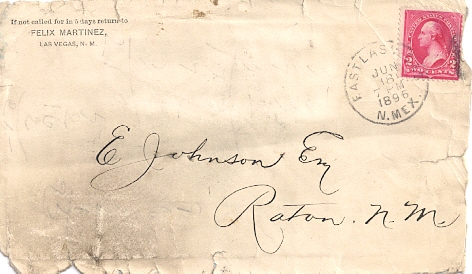 If not called for in 5 days return to
FELIX MARTINEZ,
LAS VEGAS, N. M.
EAST LAS
JUN
7 PM
1896
N. MEX.
2 2
TWO CENTS
E Johnson Esq
Raton. N. M.